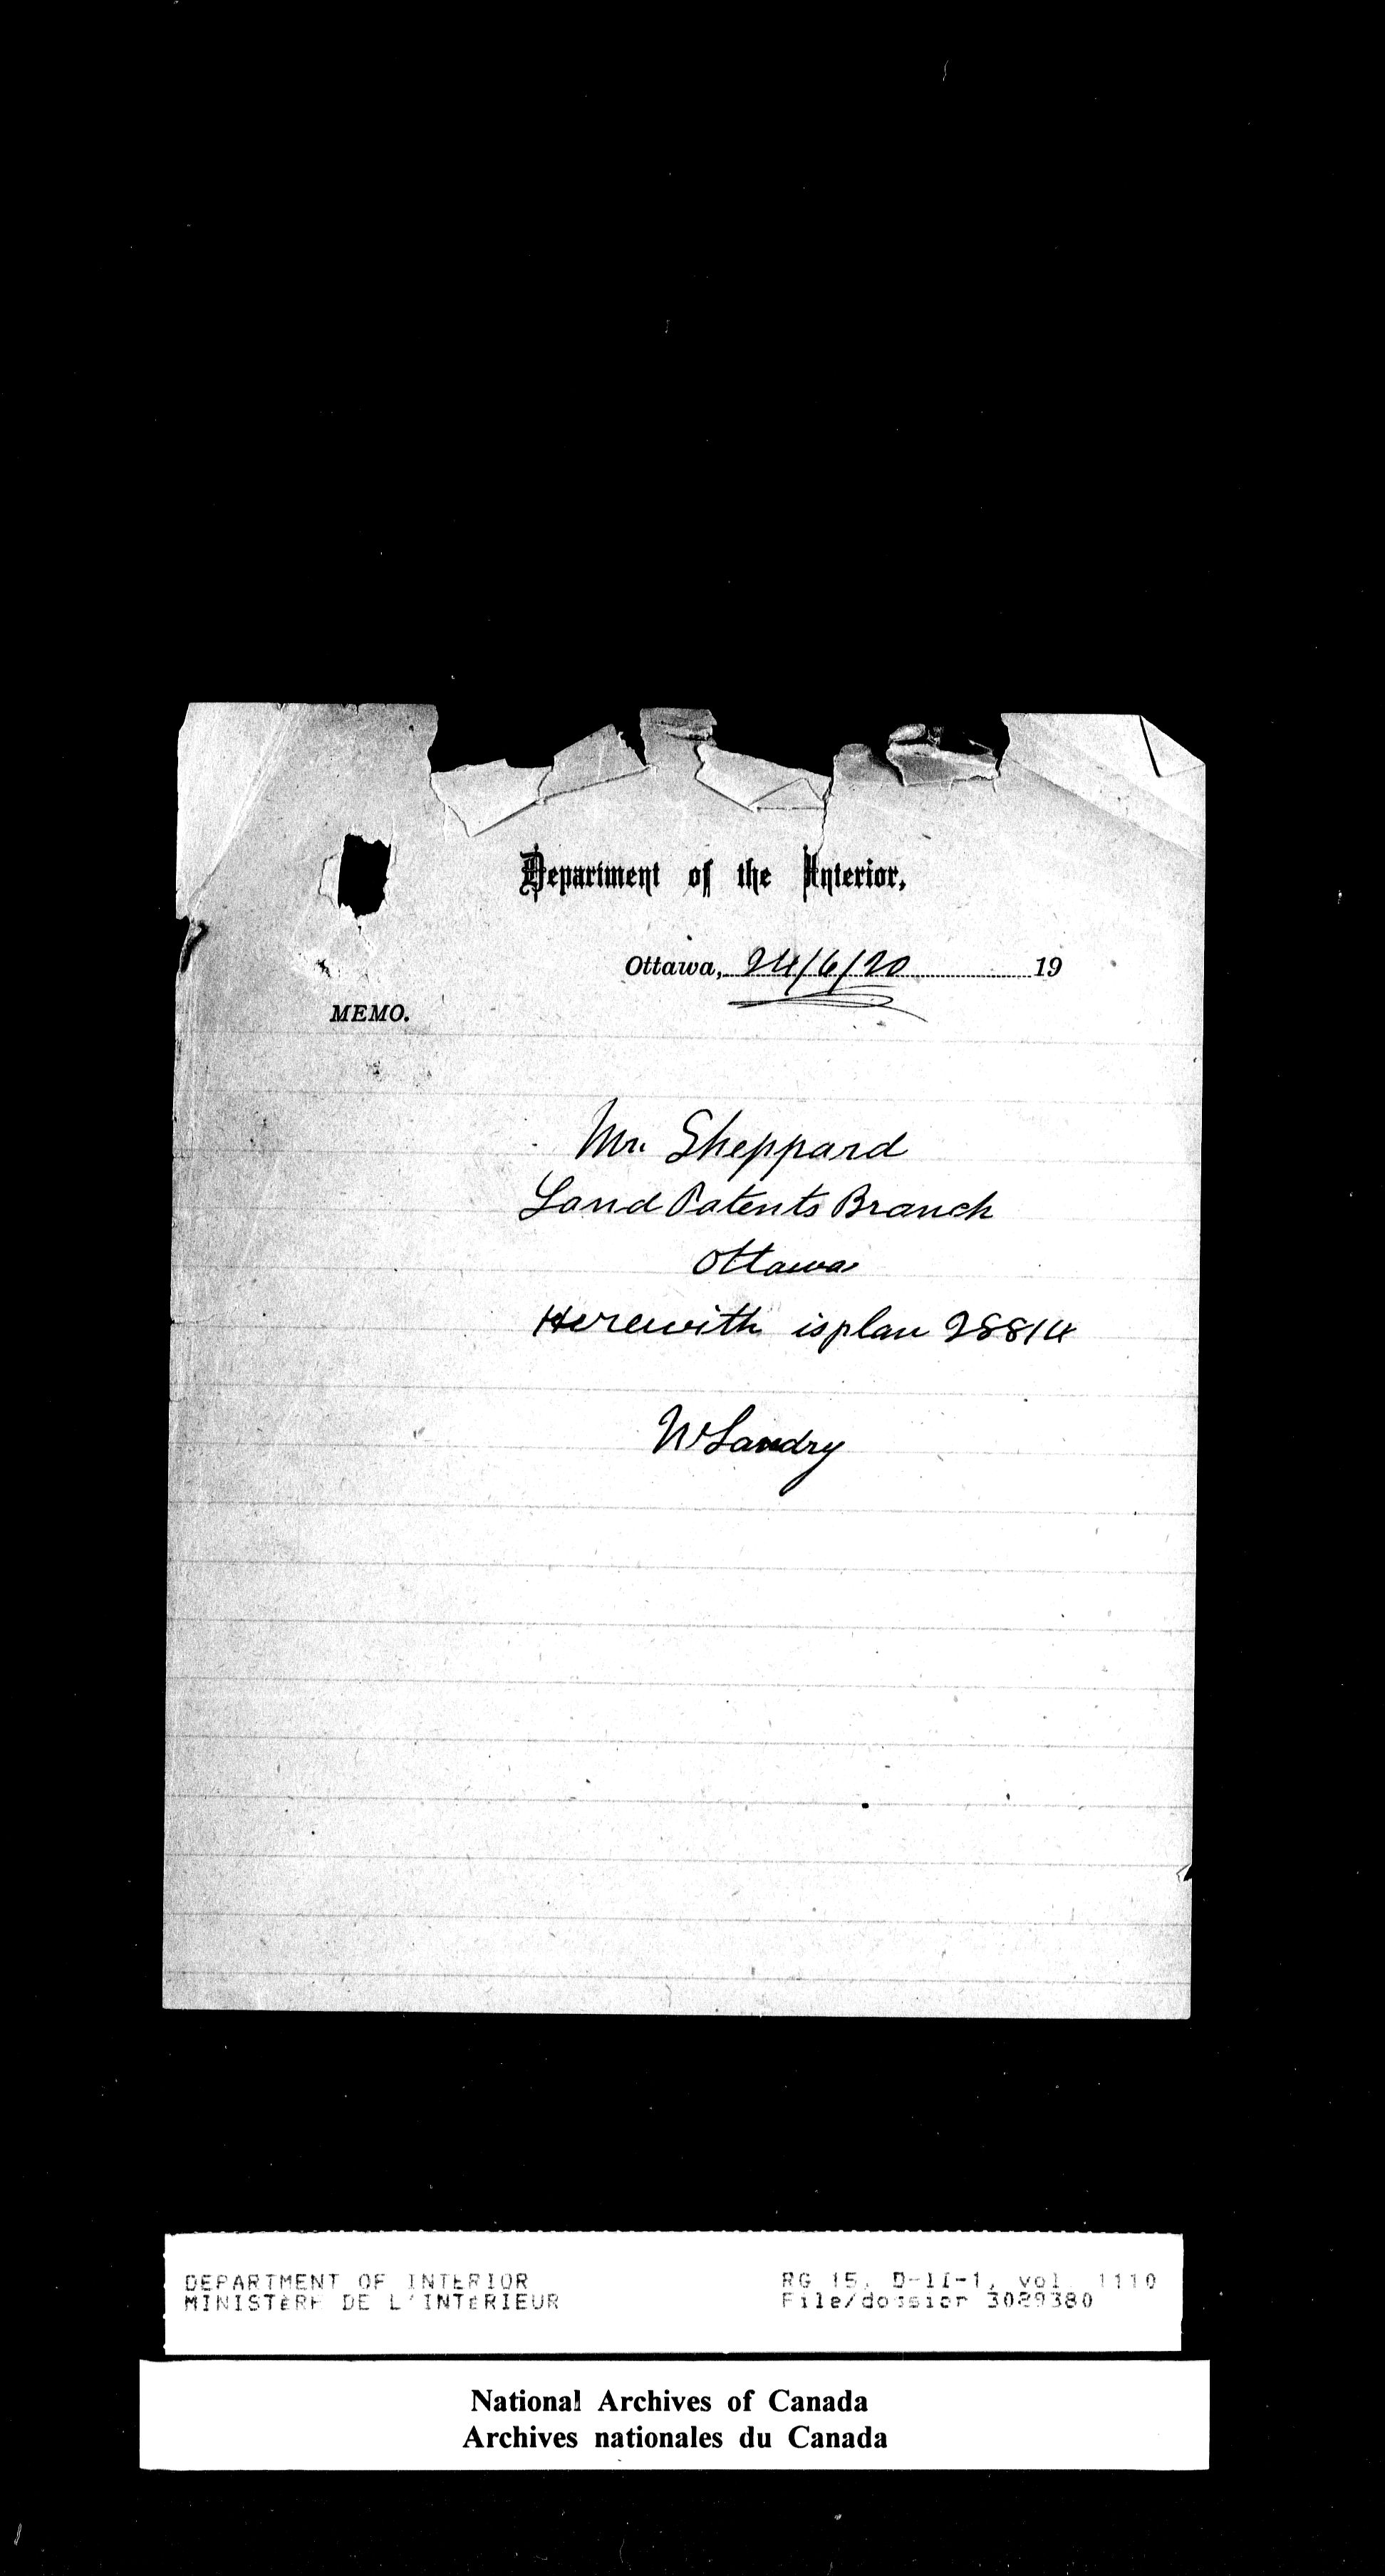 Department of the Interior,
Ottawa, 24/6/20 19
MEMO.
Mr. Sheppard
Land Patents Branch
Ottawa
Herewith is plan 28814
W Landry
DEPARTMENT OF INTERIOR
MINISTÈRE DE L'INTÉRIEUR
RG 15, D-II-1, vol. 1110
File/dossier 3029380
National Archives of Canada
Archives nationales du Canada